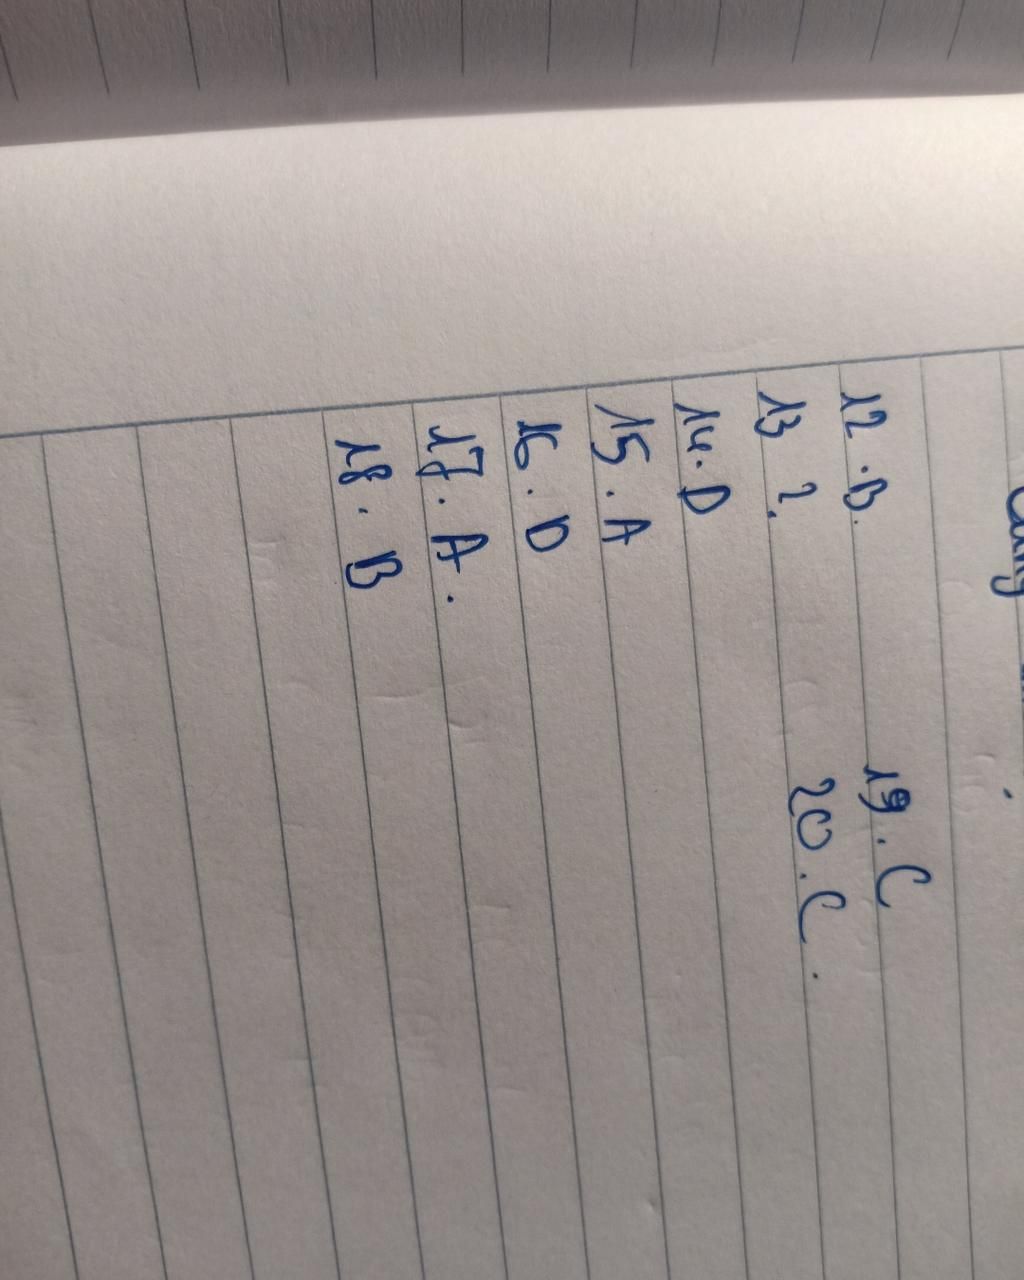 12 . B.
13 ?
14. D
15 . A
16 . D
17 . A .
18 . B
19 . C
20 . C .